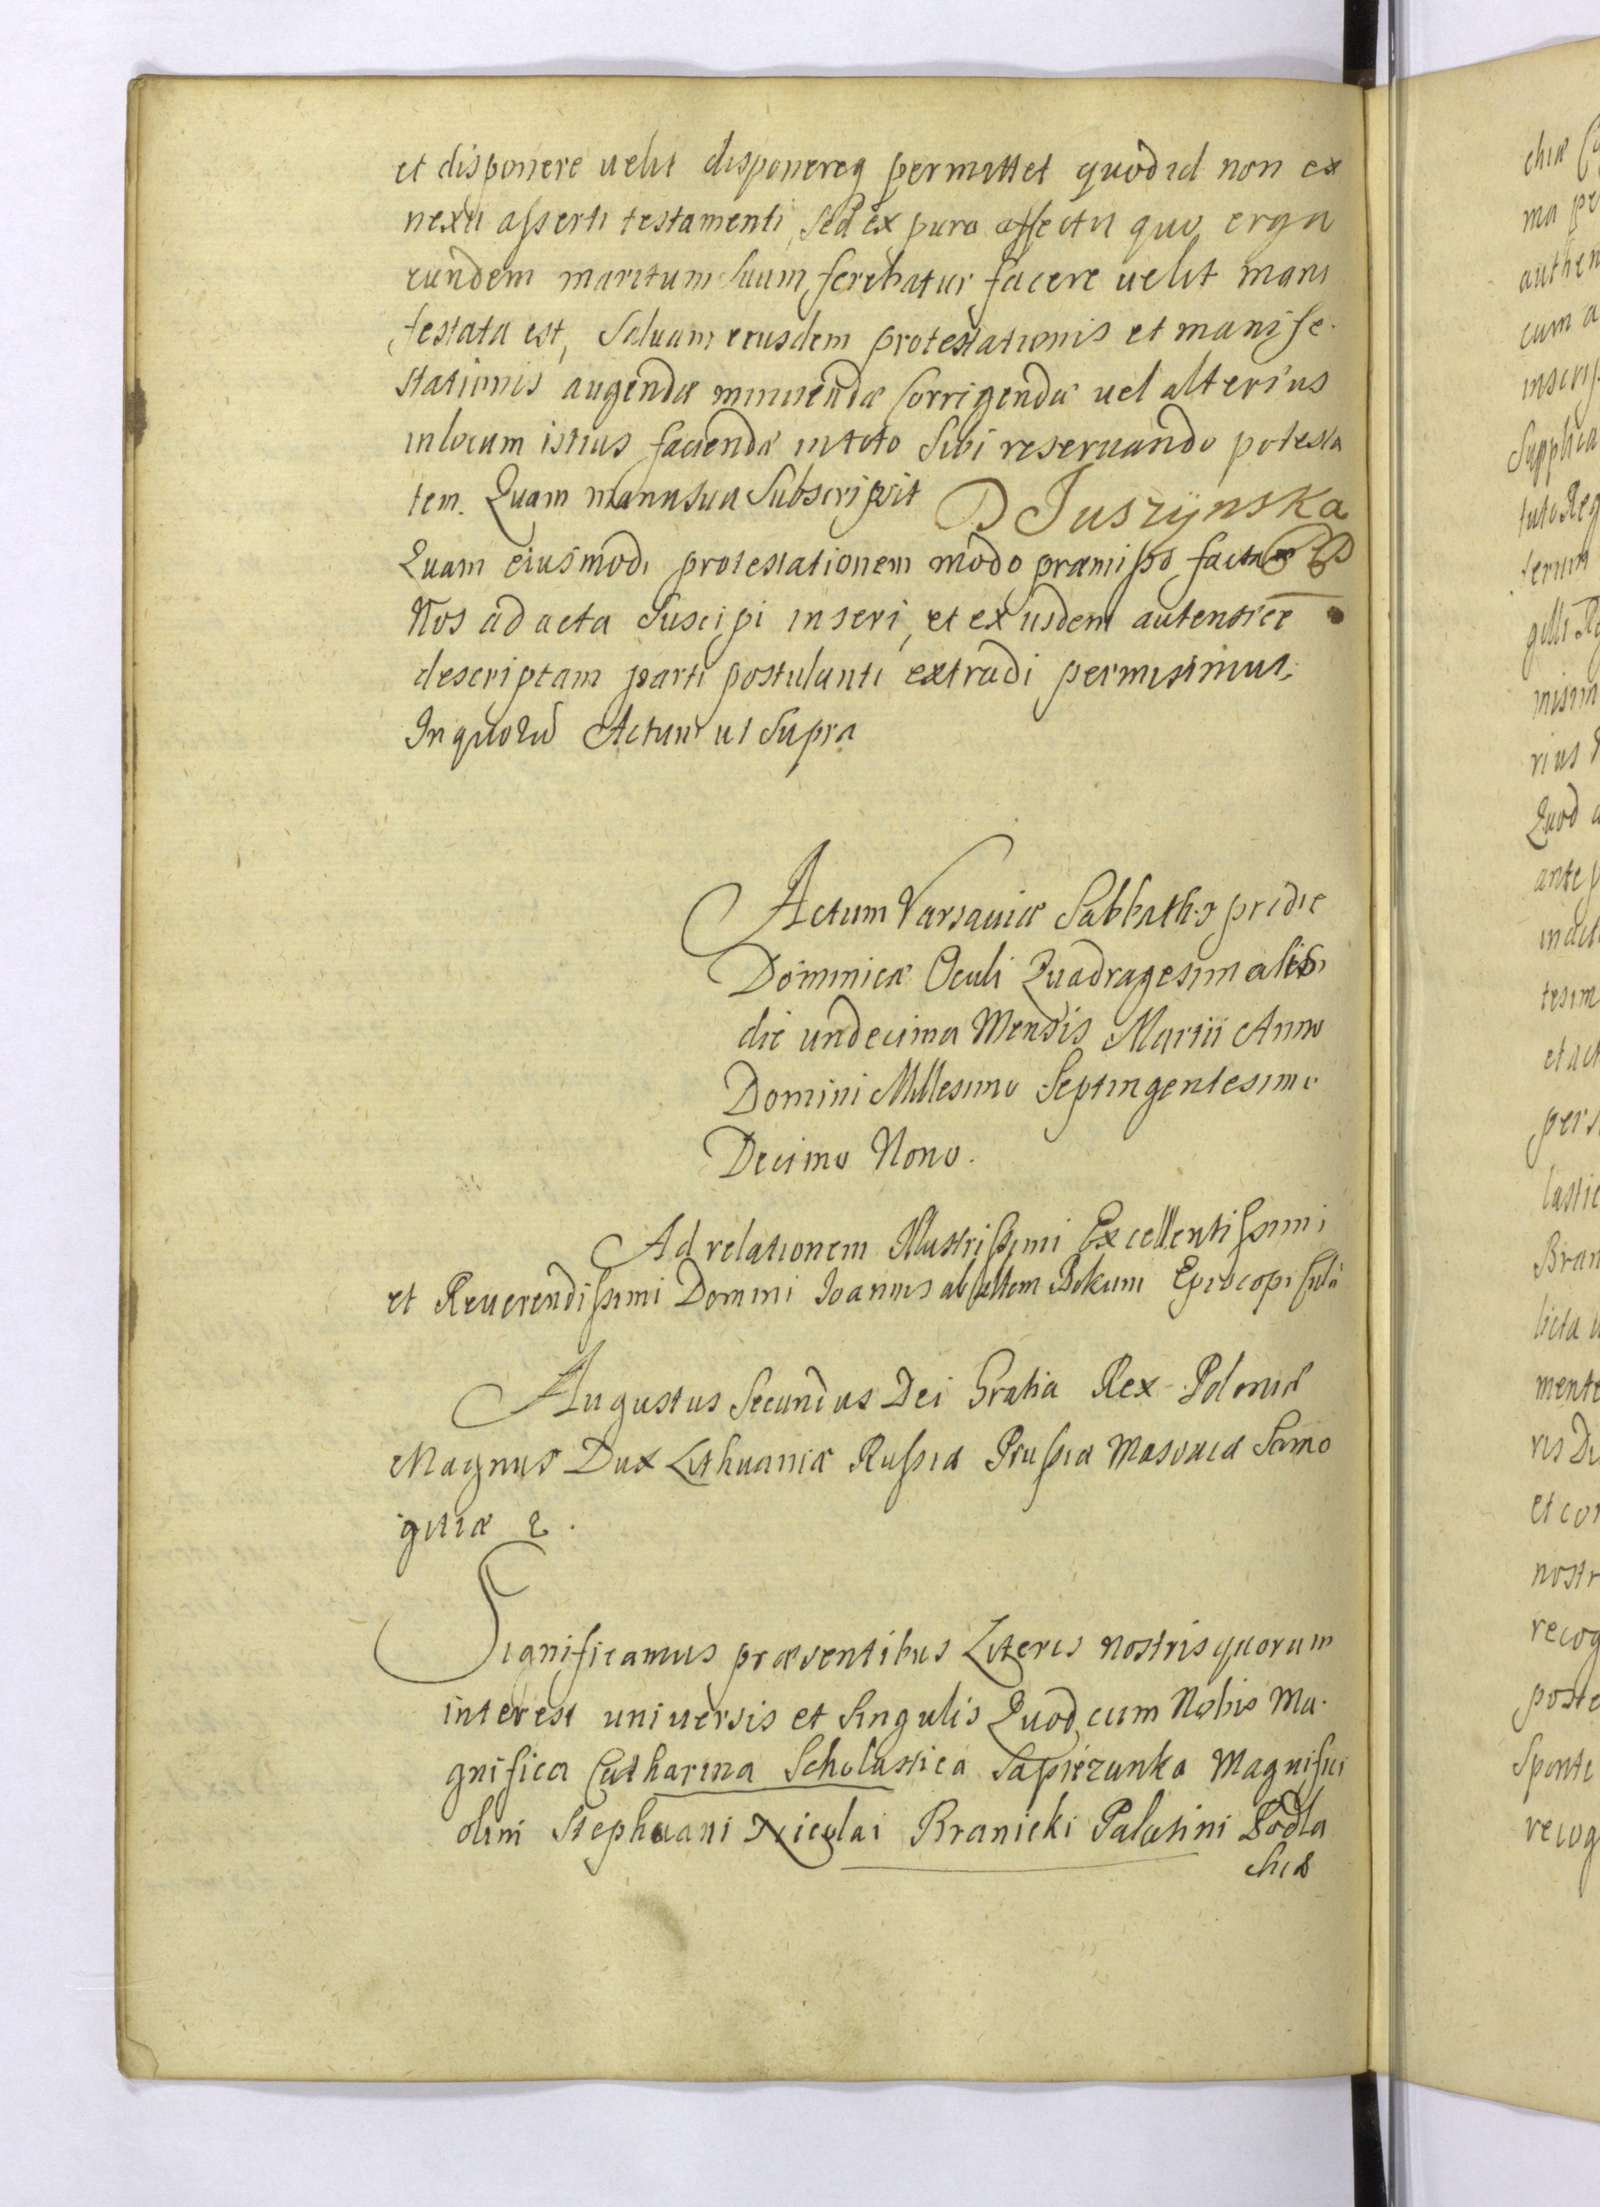 et disponere uelit disponereq permittet quod id non ex
nexu asserti testamenti, sed ex puro affectu quo erga
eundem maritum suum ferebatur facere uelit mani
festata est, Saluam eiusdem protestationis et manife-
stationis augendæ minuendæ Corrigendæ uel alterius
in locum istius faciendæ in toto Sibi reseruando potesta
tem. Quam manu sua Subscripsit D Juszÿnska
Quam eiusmodi protestationem modo præmisso factam
Nos ad acta Suscipi inseri, et ex iisdem autentice
descriptam parti postulanti extradi permisimus.
In quorũ Actum ut Supra
Actum Varsauiæ Sabbatho pridie
Dominicæ Oculi Quadragesimalis
die undecima Mensis Martii Anno
Domini Millesimo Septingentesimo
Decimo Nono.
Ad relationem Illustrissimi Excellentissimi
et Reuerendissimi Domini Joannis ab altem Bokum Episcopi
Augustus Secundus Dei Gratia Rex Poloniæ
Magnus Dux Lithuaniæ Russiæ Prussiæ Masouiæ Samo
gitiæ &.
Significamus præsentibus Literis nostris quorum
interest uniuersis et Singulis Quod cum Nobis Ma-
gnifica Catharina Scholastica Sapiezanka Magnifici
olim Stephani Nicolai Branicki Palatini Podla
chiæ